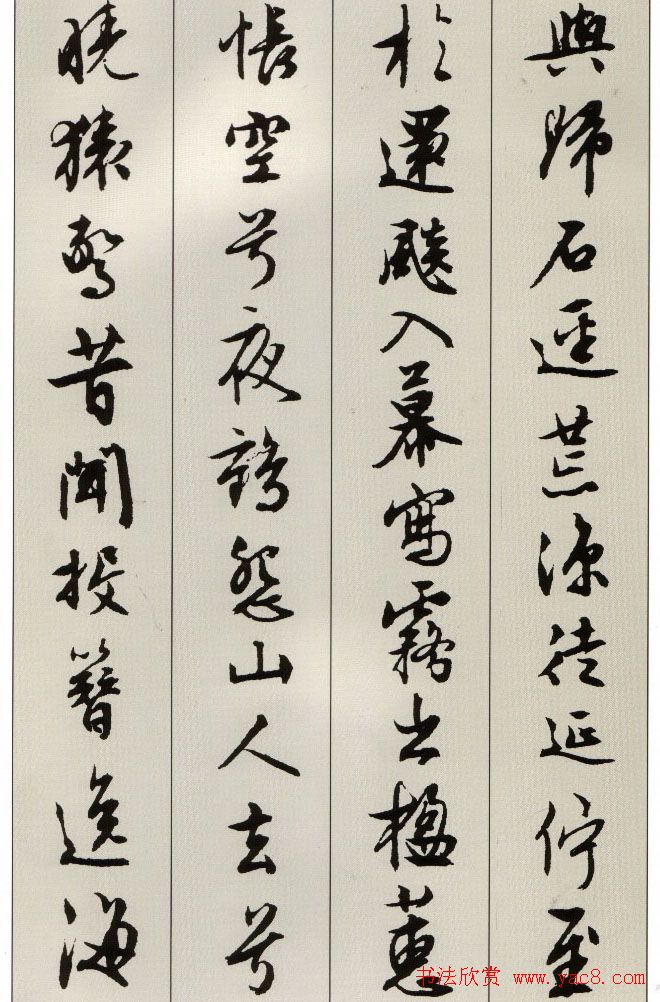 與歸石逕荒涼徒延佇至
於還飈入幕寫霧出楹蕙
帳空兮夜鶴怨山人去兮
曉猿驚昔聞投簪逸海
书法欣赏 www.yac8.com